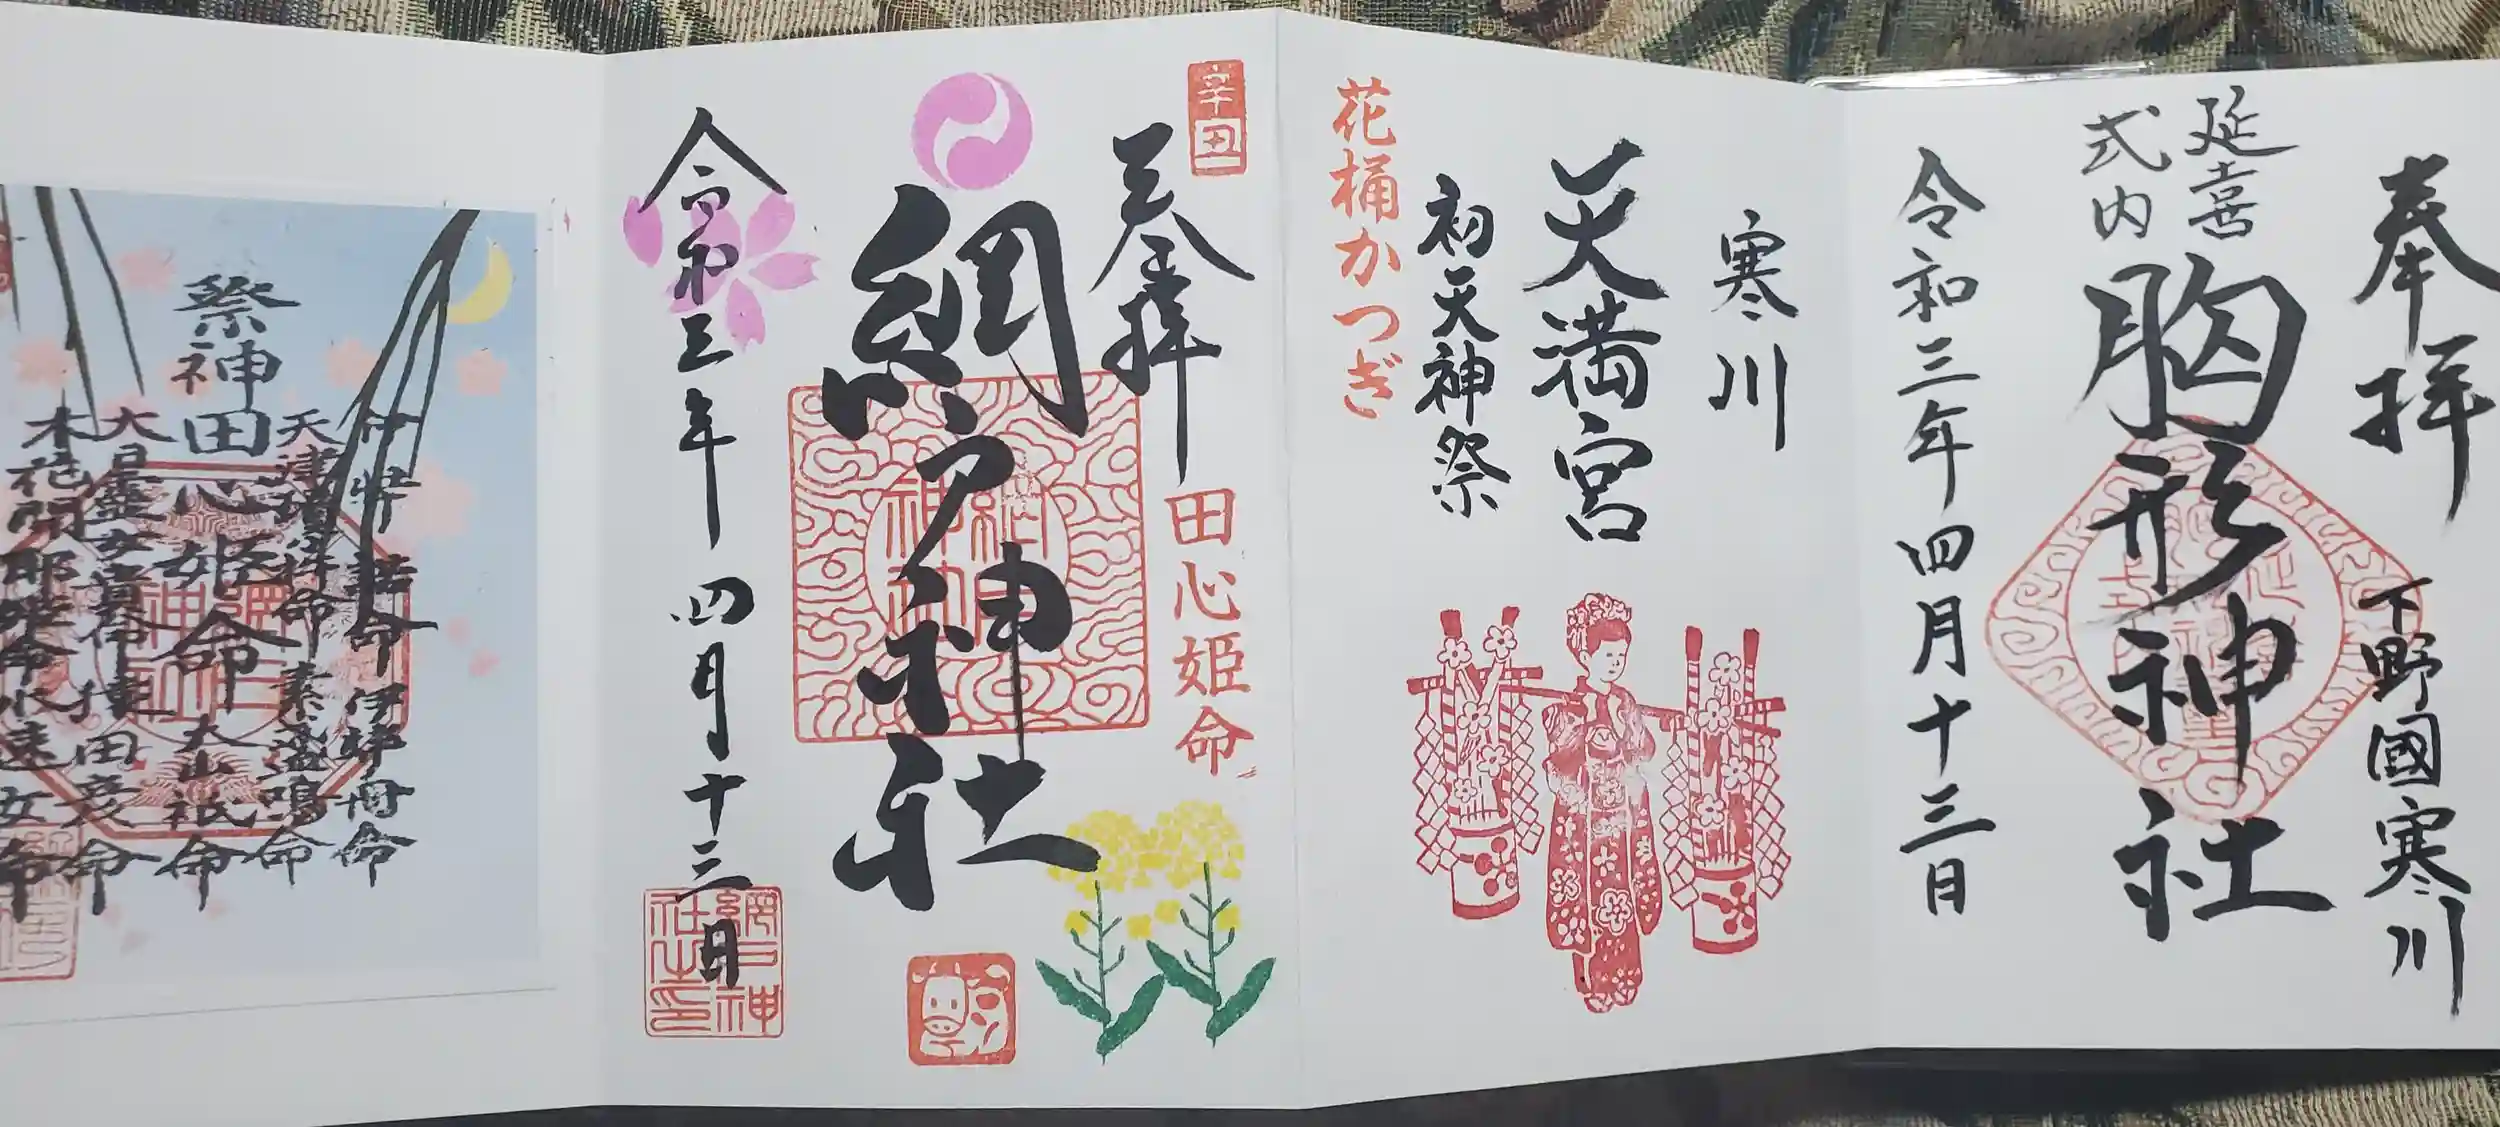 奉拝
下野國寒川
延喜
式内
胸形神社
令和三年四月十三日
寒川
天満宮
初天神祭
花桶かつぎ
辛丑
奉拝
田心姫命
網戸神社
令和三年四月十三日
網戸神
社之印
祭神
伊弉諾命 伊弉冊命
天津彦命 素盞鳴命
田心姫命 大山祇命
大日孁女貴命 猿田彦命
木花開耶姫命 水速女命